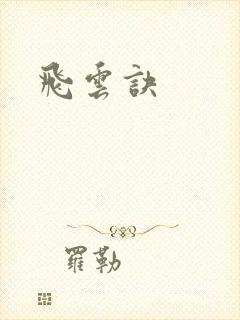 飛雲訣
羅勒